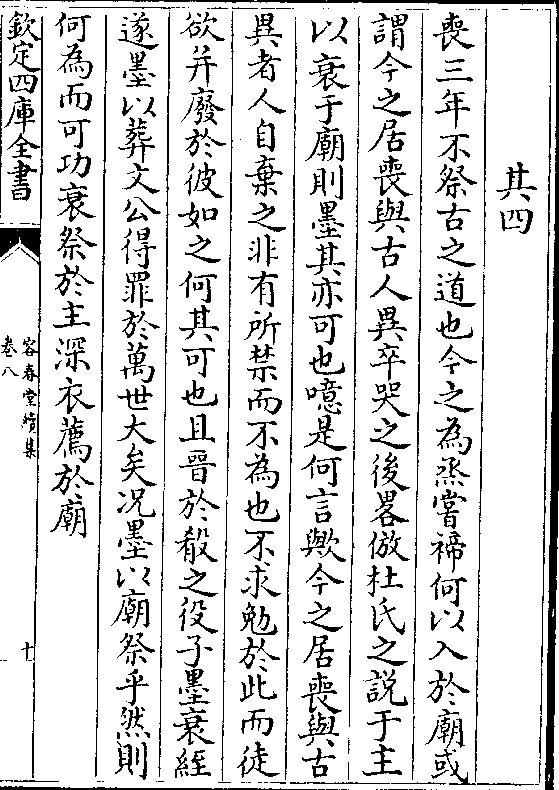 其四
喪三年不祭古之道也今之為烝嘗禘何以入於廟或
謂今之居喪與古人異卒哭之後畧倣杜氏之説于主
以衰于廟則墨其亦可也噫是何言歟今之居喪與古
異者人自棄之非有所禁而不為也不求勉於此而徒
欲并廢於彼如之何其可也且晉於殽之役子墨衰絰
遂墨以葬文公得罪於萬世大矣况墨以廟祭乎然則
何為而可功衰祭於主深衣薦於廟
欽定四庫全書
容春堂續集
卷八
十